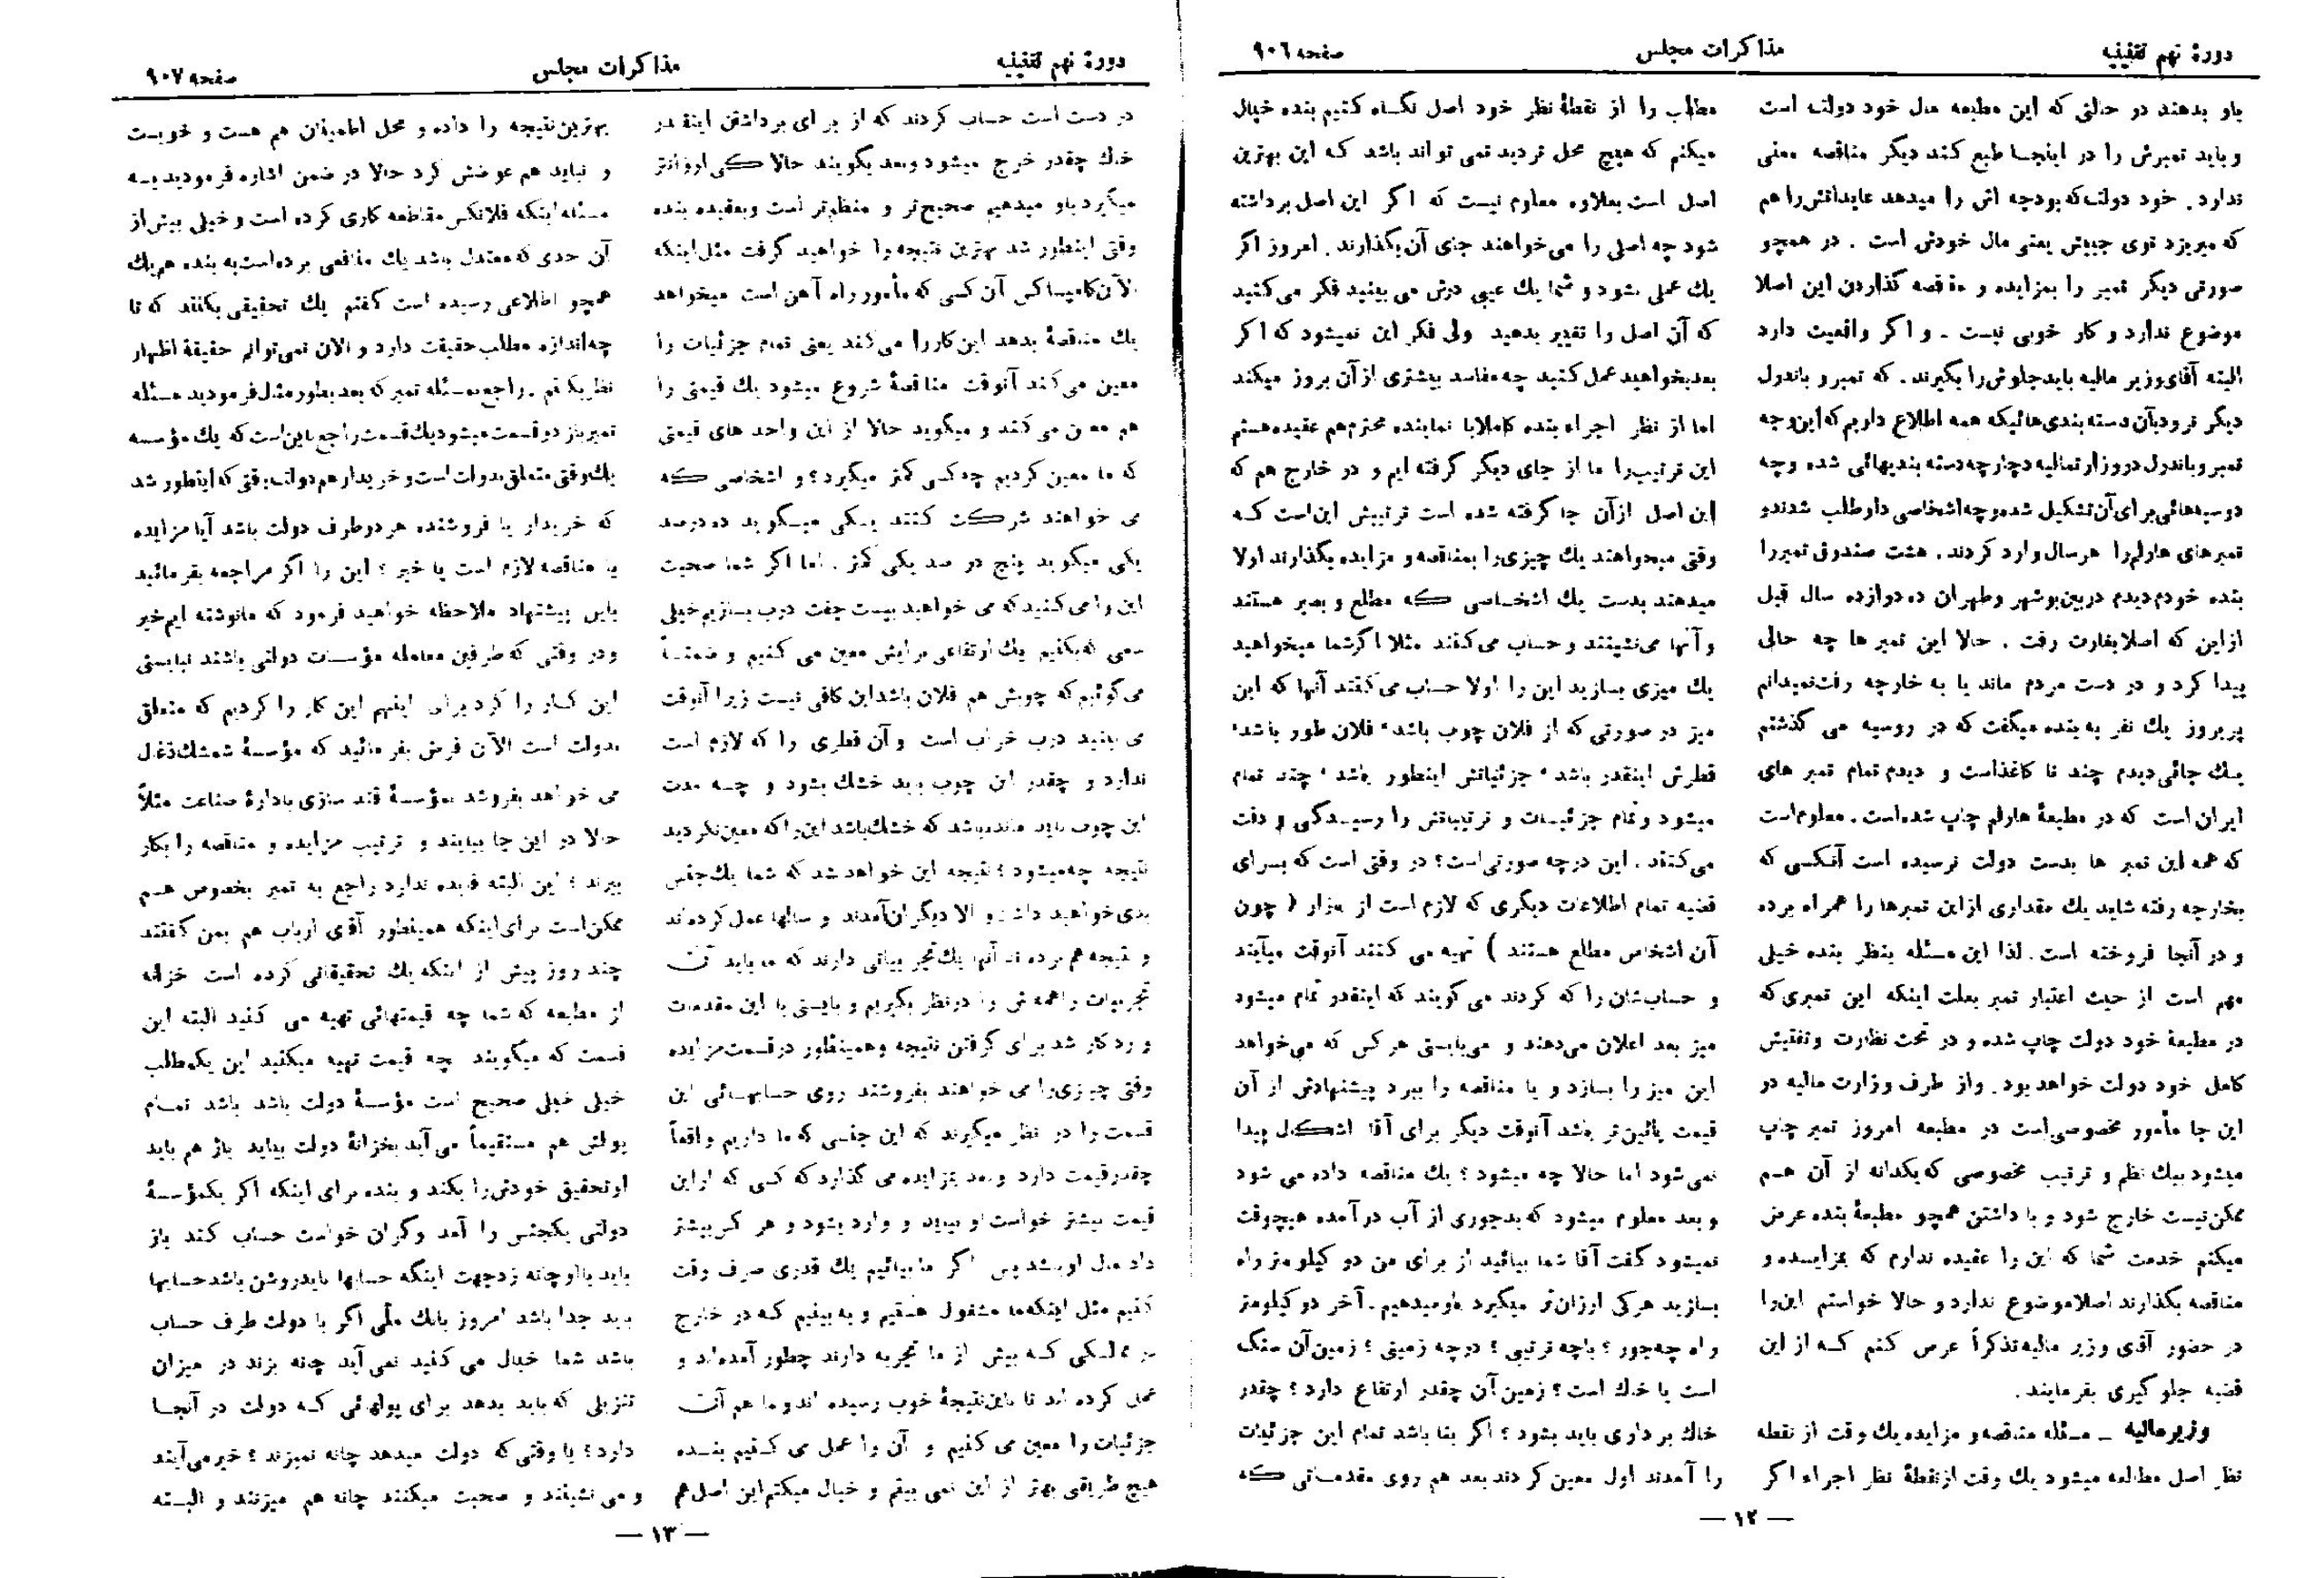 دورهٔ نهم تقنینیه
مذاکرات مجلس
صفحه ۹۰۶
باو بدهند در حالتی که این مطبعه مال خود دولت است
و باید تمبرش را در اینجا طبع کند دیگر مناقصه معنی
ندارد. خود دولت که بودجه اش را میدهد عایداتش را هم
که میریزد توی جیبش یعنی مال خودش است . در همچو
صورتی دیگر تمبر را بمزایده و مناقصه گذاردن این اصلا
موضوع ندارد و کار خوبی نیست . و اگر واقعیت دارد
البته آقای وزیر مالیه باید جلوش را بگیرند. که تمبر و باندرل
دیگر نرود بآن دسته بندی هائیکه همه اطلاع داریم که این وجه
تمبر و باندرل در وزارتمالیه دچار چه دسته بندیهائی شده و چه
دوسیه هائی برای آن تشکیل شد و چه اشخاصی داوطلب شدند و
تمبرهای هارلم را هر سال وارد کردند. هشت صندوق تمبر را
بنده خودم دیدم در بین بوشهر و طهران ده دوازده سال قبل
از این که اصلا بغارت رفت . حالا این تمبر ها چه حالی
پیدا کرد و در دست مردم ماند یا به خارجه رفت نمیدانم
پریروز یك نفر به بنده میگفت که در روسیه می گذشتم
یك جائی دیدم چند تا کاغذ است و دیدم تمام تمبر های
ایران است که در مطبعهٔ هارلم چاپ شده است . معلوم است
که همه این تمبر ها بدست دولت نرسیده است آنکسی که
بخارجه رفته شاید یك مقداری از این تمبرها را همراه برده
و در آنجا فروخته است . لذا این مسئله بنظر بنده خیلی
مهم است از حیث اعتبار تمبر بعلت اینکه این تمبری که
در مطبعهٔ خود دولت چاپ شده و در تحت نظارت و تفتیش
کامل خود دولت خواهد بود. و از طرف وزارت مالیه در
این جا مأمور مخصوصی است در مطبعه امروز تمبر چاپ
میشود بیك نظم و ترتیب مخصوصی که یکدانه از آن هم
ممکن نیست خارج شود و با داشتن همچو مطبعهٔ بنده عرض
میکنم خدمت شما که این را عقیده ندارم که بمزایده و
مناقصه بگذارند اصلا موضوع ندارد و حالا خواستم این را
در حضور آقای وزیر مالیه تذکراً عرض کنم که از این
قضیه جلوگیری بفرمایند .
وزیر مالیه ـ مسئله مناقصه و مزایده یك وقت از نقطه
نظر اصل مطالعه میشود یك وقت از نقطهٔ نظر اجراء اگر
مطلب را از نقطهٔ نظر خود اصل نگاه کنیم بنده خیال
میکنم که هیچ محل تردید نمی تواند باشد که این بهترین
اصل است بعلاوه معلوم نیست که اگر این اصل برداشته
شود چه اصلی را می خواهند جای آن بگذارند . امروز اگر
یك عملی بشود و شما یك عیبی درش می بینید فکر می کنید
که آن اصل را تغییر بدهید ولی فکر این نمیشود که اگر
بعد بخواهید عمل کنید چه مفاسد بیشتری از آن بروز میکند
اما از نظر اجراء بنده کاملا با نماینده محترم هم عقیده هستم
این ترتیب را ما از جای دیگر گرفته ایم و در خارج هم که
این اصل از آن جا گرفته شده است ترتیبش این است که
وقتی میخواهند یك چیزی را بمناقصه و مزایده بگذارند اولا
میدهند بدست یك اشخاصی که مطلع و بصیر هستند
و آنها می نشینند و حساب می کنند مثلا اگر شما میخواهید
یك میزی بسازید این را اولا حساب می کنند آنها که این
میز در صورتی که از فلان چوب باشد، فلان طور باشد،
قطرش اینقدر باشد، جزئیاتش اینطور باشد، چند تمام
میشود و تمام جزئیات و ترتیباتش را رسیدگی و دقت
می کنند . این در چه صورتی است؟ در وقتی است که برای
قضیه تمام اطلاعات دیگری که لازم است از بازار ( چون
آن اشخاص مطلع هستند ) تهیه می کنند آنوقت میآیند
و حساب شان را که کردند می گویند که اینقدر تمام میشود
میز بعد اعلان می دهند و می بایستی هر کس که می خواهد
این میز را بسازد و یا مناقصه را ببرد پیشنهادش از آن
قیمت پائین تر باشد آنوقت دیگر برای آقا اشکال پیدا
نمی شود اما حالا چه میشود ؟ یك مناقصه داده می شود
و بعد معلوم میشود که بدجوری از آب در آمده هیچوقت
نمیشود گفت آقا شما بیائید از برای من دو کیلومتر راه
بسازید هر کی ارزان تر میگیرد باو میدهیم . آخر دو کیلومتر
راه چه جور ؟ با چه ترتیبی ؟ در چه زمینی ؟ زمین آن سنگ
است یا خاك است ؟ زمین آن چقدر ارتفاع دارد ؟ چقدر
خاك برداری باید بشود ؟ اگر بنا باشد تمام این جزئیات
را آمدند اول معین کردند بعد هم روی مقدماتی که
— ۱۲ —
دورهٔ نهم تقنینیه
مذاکرات مجلس
صفحه ۹۰۷
در دست است حساب کردند که از برای برداشتن اینقدر
خاك چقدر خرج میشود و بعد بگویند حالا کی ارزانتر
میگیرد باو میدهیم صحیح تر و منظم تر است و بعقیده بنده
وقتی اینطور شد بهترین نتیجه را خواهید گرفت مثل اینکه
الآن کامپساکس آن کسی که مأمور راه آهن است میخواهد
یك مناقصهٔ بدهد این کار را می کند یعنی تمام جزئیات را
معین می کند آنوقت مناقصهٔ شروع میشود یك قیمتی را
هم معین می کند و میگوید حالا از این واحد های قیمتی
که ما معین کردیم چه کسی کمتر میگیرد ؟ و اشخاصی که
می خواهند شرکت کنند یکی میگوید ده درصد
یکی میگوید پنج در صد یکی کمتر . اما اگر شما صحبت
این را می کنید که می خواهید بیست جفت درب بسازیم خیلی
سعی که بکنیم یك ارتفاعی برایش معین می کنیم و ضمناً
می گوئیم که چوبش هم فلان باشد این کافی نیست زیرا آنوقت
می بینید درب خراب است و آن قطری را که لازم است
ندارد و چقدر این چوب باید خشك بشود و چه مدت
این چوب باید مانده باشد که خشك باشد این را که معین نکردید
نتیجه چه میشود ؟ نتیجه این خواهد شد که شما یك جنس
بدی خواهید داشت و الا دیگران آمدند و سالها عمل کرده اند
و نتیجه هم برده اند آنها یك تجربیاتی دارند که ما باید آن
تجربیات را همه ش را در نظر بگیریم و بایستی با این مقدمات
وارد کار شد برای گرفتن نتیجه و همینطور در قسمت مزایده
وقتی چیزی را می خواهند بفروشند روی حسابهائی این
قسمت را در نظر میگیرند که این جنسی که ما داریم واقعاً
چقدر قیمت دارد و بعد بمزایده می گذارد که کسی که از این
قیمت بیشتر خواست او بیاید و وارد بشود و هر کس بیشتر
داد مال او باشد پس اگر ما بیائیم یك قدری صرف وقت
کنیم مثل اینکه ما مشغول هستیم و به بینیم که در خارج
در ممالکی که بیش از ما تجربه دارند چطور آمده اند و
عمل کرده اند تا باین نتیجهٔ خوب رسیده اند و ما هم آن
جزئیات را معین می کنیم و آن را عمل می کنیم بنده
هیچ طریقی بهتر از این نمی بینم و خیال میکنم این اصل هم
بهترین نتیجه را داده و محل اطمینان هم هست و خوبست
و نباید هم عوضش کرد حالا در ضمن اشاره فرمودید به
مسئله اینکه فلانکس مقاطعه کاری کرده است و خیلی بیش از
آن حدی که معتدل باشد یك منافعی برده است به بنده هم یك
همچو اطلاعی رسیده است گفتم یك تحقیقی بکنند که تا
چه اندازه مطلب حقیقت دارد و الان نمی توانم حقیقة اظهار
نظر بکنم . راجع بمسئله تمبر که بعد بطور مثل فرمودید مسئله
تمبر باز دو قسمت میشود یك قسمت راجع باین است که یك مؤسسه
یك وقتی متعلق بدولت است و خریدار هم دولت وقتی که اینطور شد
که خریدار یا فروشنده هر دو طرف دولت باشد آیا مزایده
یا مناقصه لازم است یا خیر ؟ این را اگر مراجعه بفرمائید
باین پیشنهاد ملاحظه خواهید فرمود که ما نوشته ایم خیر
و در وقتی که طرفین معامله مؤسسات دولتی باشند نبایستی
این کار را کرد برای اینهم این کار را کردیم که متعلق
بدولت است الآن فرض بفرمائید که مؤسسهٔ شمشك ذغال
می خواهد بفروشد بمؤسسهٔ قند سازی یا ادارهٔ صناعت مثلاً
حالا در این جا بیایند و ترتیب مزایده و مناقصه را بکار
ببرند ؟ این البته فایده ندارد راجع به تمبر بخصوص هم
ممکن است برای اینکه همینطور آقای ارباب هم بمن گفتند
چند روز پیش از اینکه یك تحقیقاتی کرده است خزانه
از مطبعه که شما چه قیمتهائی تهیه می کنید البته این
قسمت که میگویند چه قیمت تهیه میکنید این یکمطلب
خیلی خیلی صحیح است مؤسسهٔ دولت باشد باشد تمام
پولش هم مستقیماً می آید بخزانهٔ دولت بیاید باز هم باید
او تحقیق خودش را بکند و بنده برای اینکه اگر یکمؤسسهٔ
دولتی یکجنس را آمد و گران خواست حساب کند باز
باید با او چانه زد جهت اینکه حسابها باید روشن باشد حسابها
باید جدا باشد امروز بانك ملی اگر با دولت طرف حساب
باشد شما خیال می کنید نمی آید چانه بزند در میزان
تنزیلی که باید بدهد برای پولهائی که دولت در آنجا
دارد ؟ یا وقتی که دولت میدهد چانه نمیزند ؟ خیر می آیند
و می نشینند و صحبت میکنند چانه هم میزنند و البته
— ۱۳ —